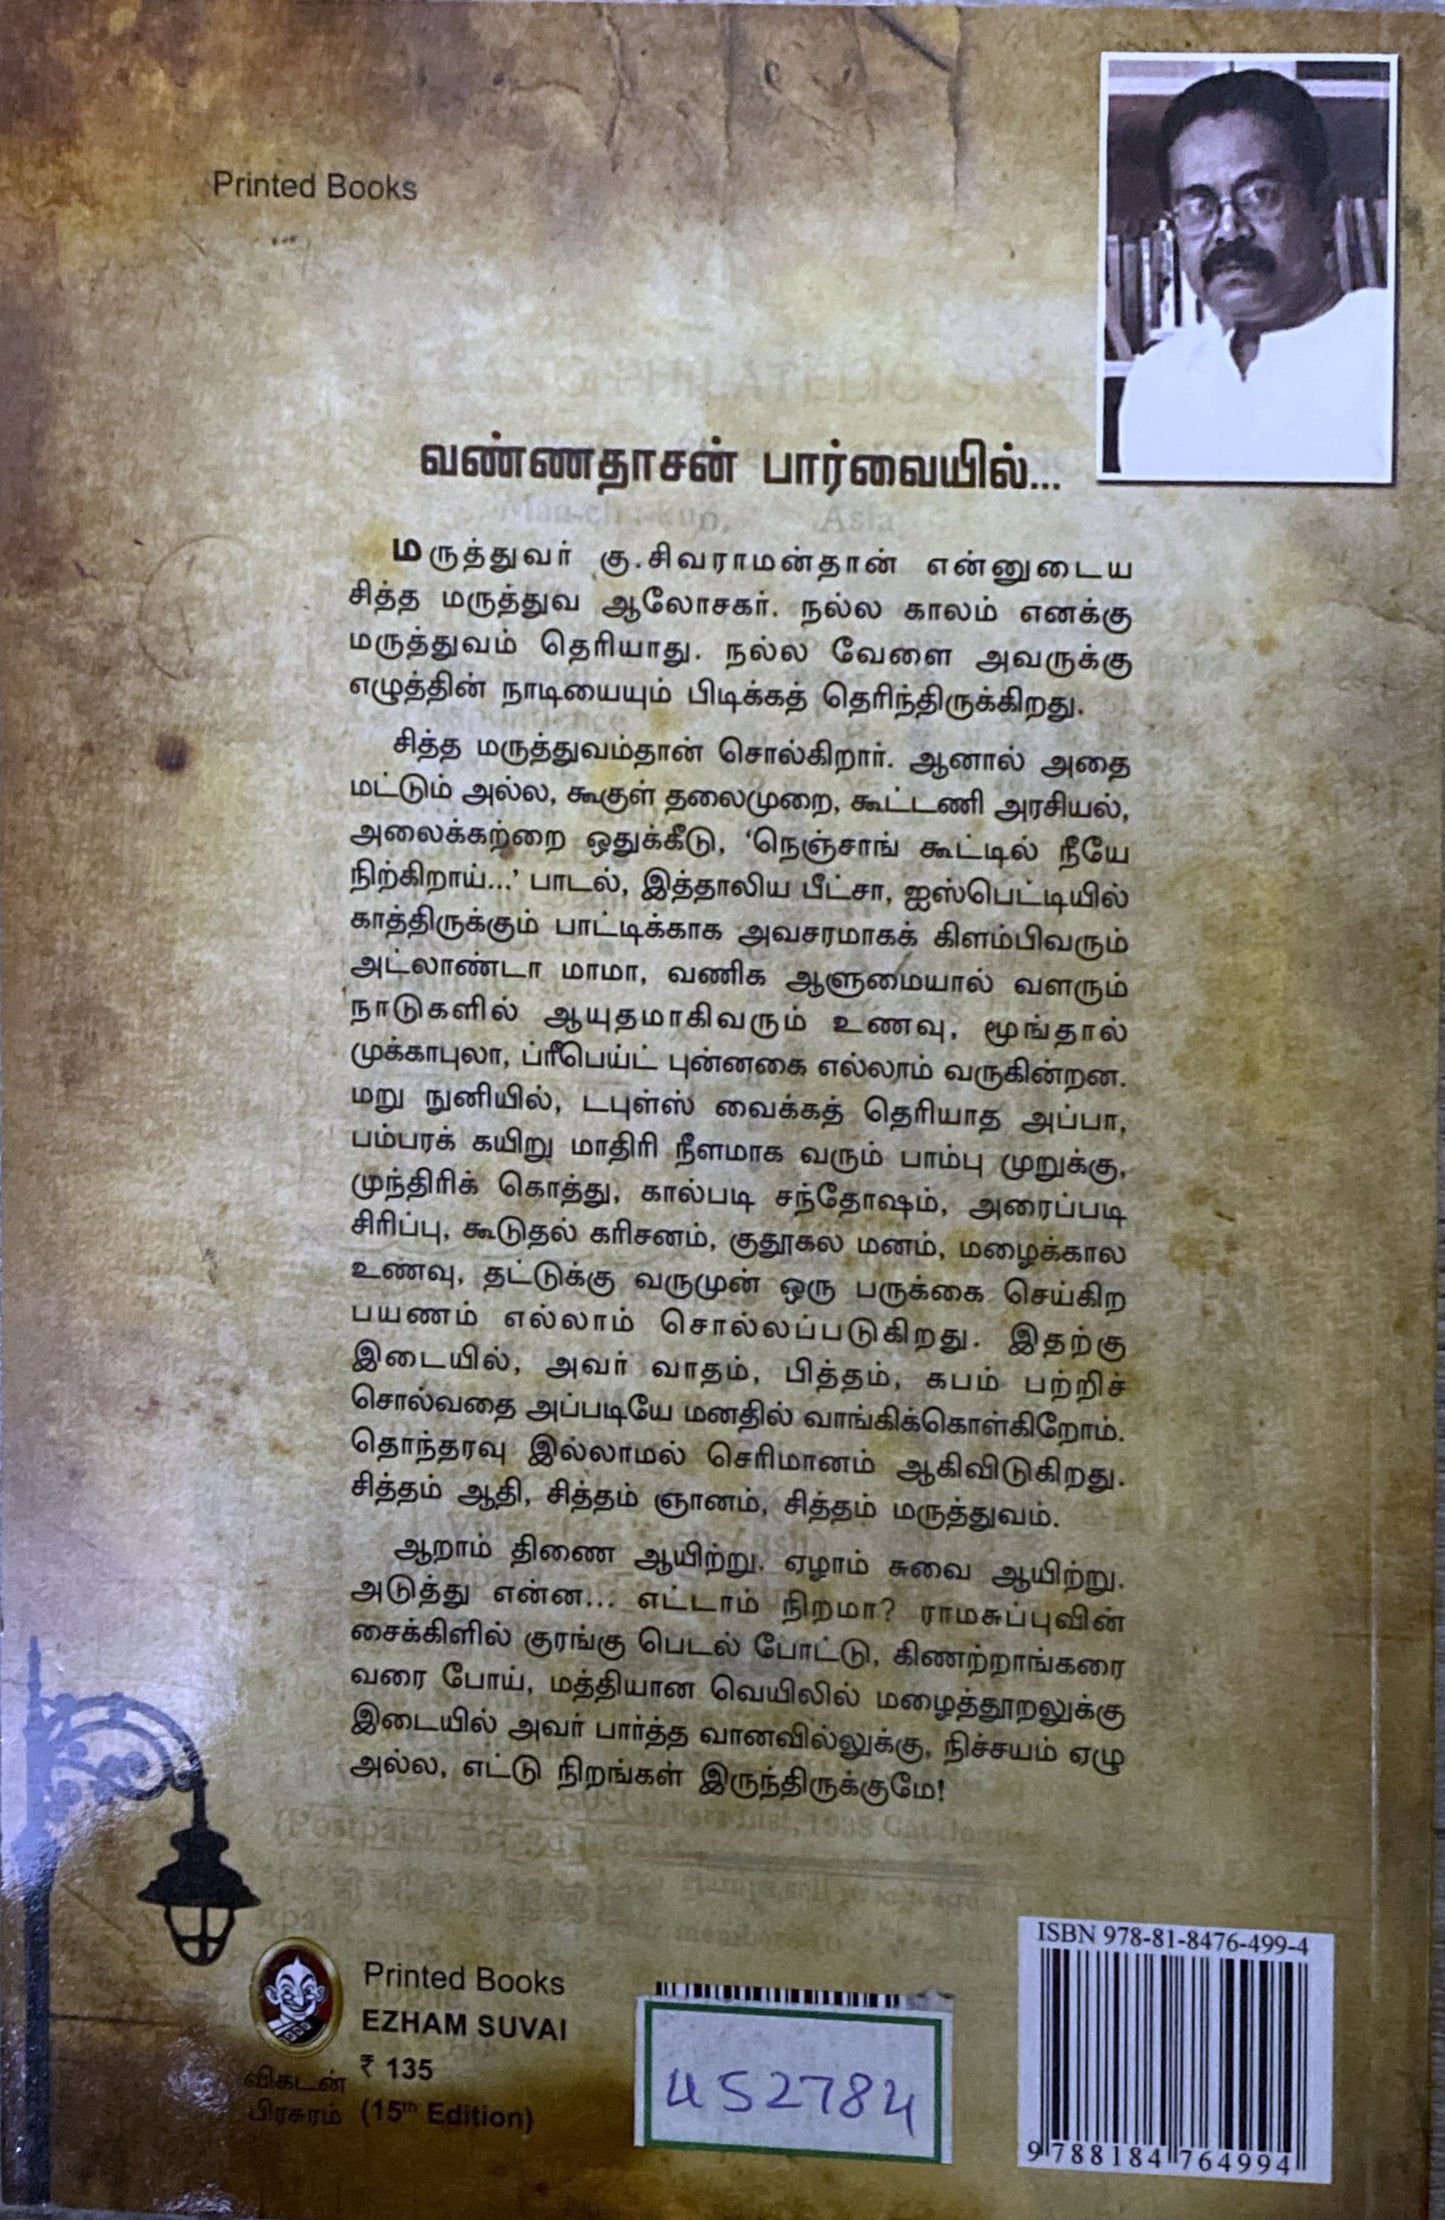 Printed Books
வண்ணதாசன் பார்வையில்...
மருத்துவர் கு.சிவராமன்தான் என்னுடைய
சித்த மருத்துவ ஆலோசகர். நல்ல காலம் எனக்கு
மருத்துவம் தெரியாது. நல்ல வேளை அவருக்கு
எழுத்தின் நாடியையும் பிடிக்கத் தெரிந்திருக்கிறது.
சித்த மருத்துவம்தான் சொல்கிறார். ஆனால் அதை
மட்டும் அல்ல, கூகுள் தலைமுறை, கூட்டணி அரசியல்,
அலைக்கற்றை ஒதுக்கீடு, ‘நெஞ்சாங் கூட்டில் நீயே
நிற்கிறாய்...’ பாடல், இத்தாலிய பீட்சா, ஐஸ்பெட்டியில்
காத்திருக்கும் பாட்டிக்காக அவசரமாகக் கிளம்பிவரும்
அட்லாண்டா மாமா, வணிக ஆளுமையால் வளரும்
நாடுகளில் ஆயுதமாகிவரும் உணவு, மூங்தால்
முக்காபுலா, ப்ரீபெய்ட் புன்னகை எல்லாம் வருகின்றன.
மறு நுனியில், டபுள்ஸ் வைக்கத் தெரியாத அப்பா,
பம்பரக் கயிறு மாதிரி நீளமாக வரும் பாம்பு முறுக்கு,
முந்திரிக் கொத்து, கால்படி சந்தோஷம், அரைப்படி
சிரிப்பு, கூடுதல் கரிசனம், குதூகல மனம், மழைக்கால
உணவு, தட்டுக்கு வருமுன் ஒரு பருக்கை செய்கிற
பயணம் எல்லாம் சொல்லப்படுகிறது. இதற்கு
இடையில், அவர் வாதம், பித்தம், கபம் பற்றிச்
சொல்வதை அப்படியே மனதில் வாங்கிக்கொள்கிறோம்.
தொந்தரவு இல்லாமல் செரிமானம் ஆகிவிடுகிறது.
சித்தம் ஆதி, சித்தம் ஞானம், சித்தம் மருத்துவம்.
ஆறாம் திணை ஆயிற்று. ஏழாம் சுவை ஆயிற்று.
அடுத்து என்ன... எட்டாம் நிறமா? ராமசுப்புவின்
சைக்கிளில் குரங்கு பெடல் போட்டு, கிணற்றாங்கரை
வரை போய், மத்தியான வெயிலில் மழைத்தூறலுக்கு
இடையில் அவர் பார்த்த வானவில்லுக்கு, நிச்சயம் ஏழு
அல்ல, எட்டு நிறங்கள் இருந்திருக்குமே!
ISBN 978-81-8476-499-4
Printed Books
EZHAM SUVAI
₹ 135
(15th Edition)
விகடன்
பிரசுரம்
452784
9 788184 764994